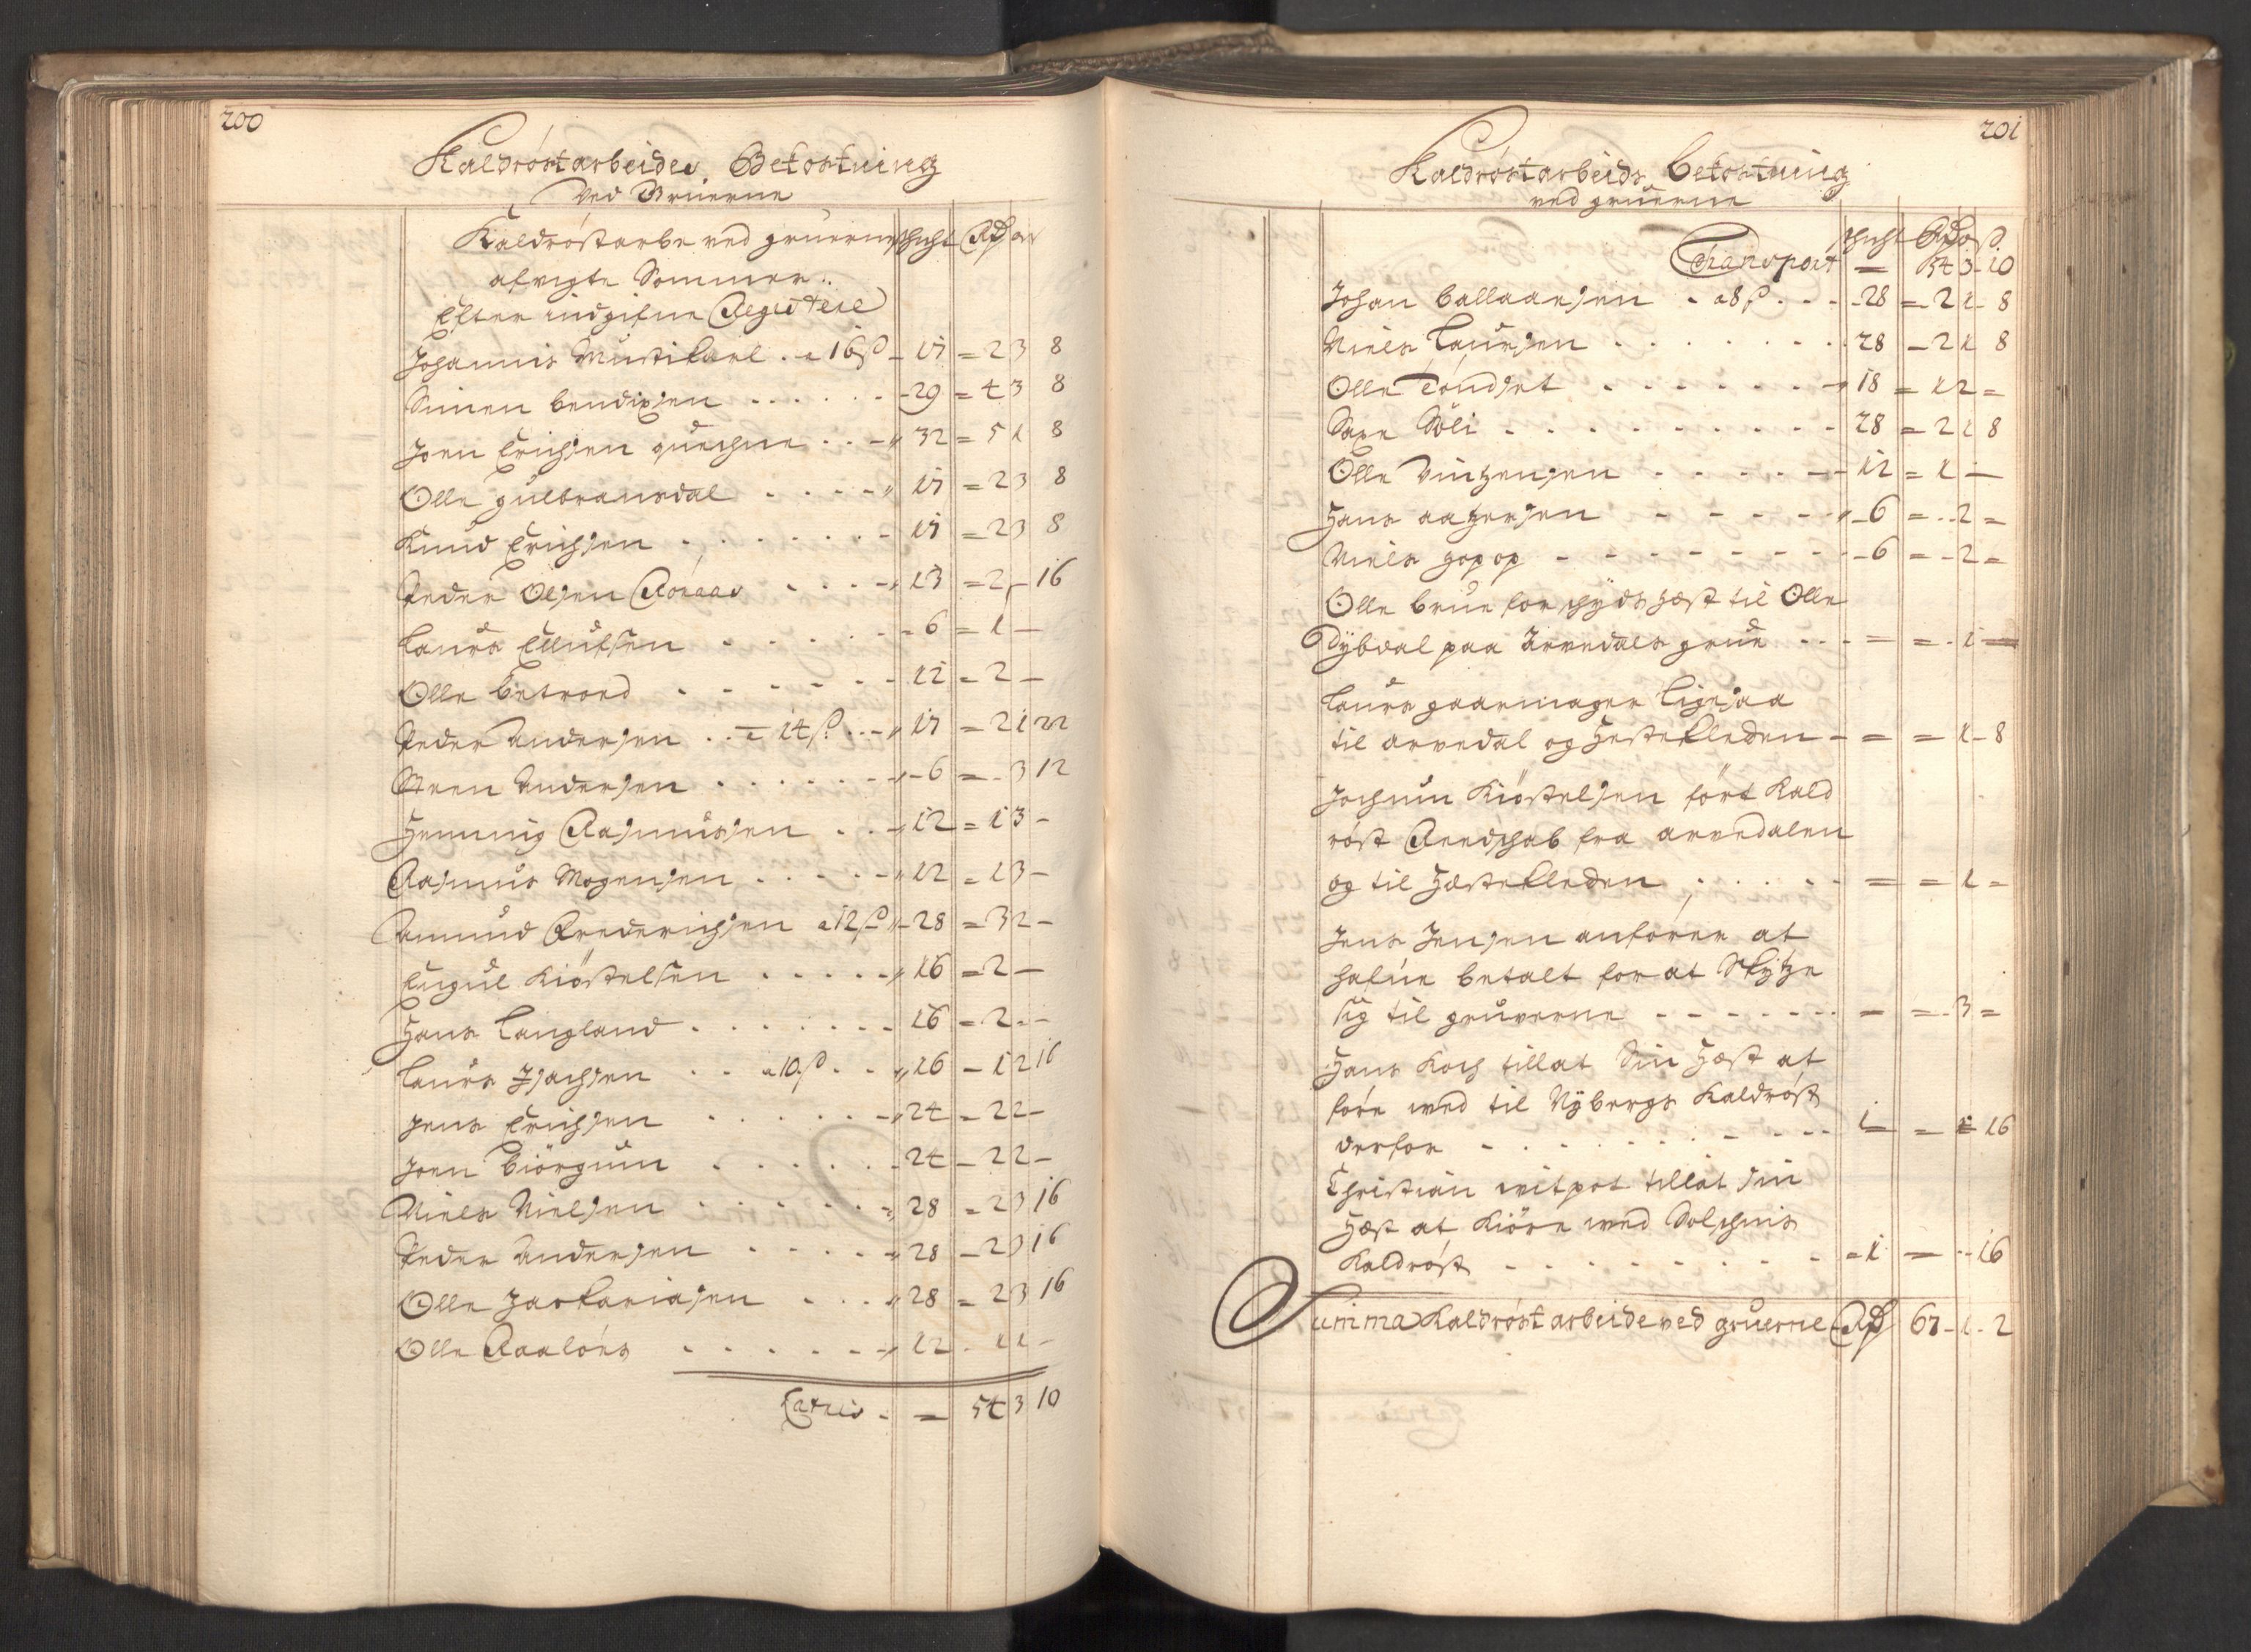 200
Kaldröstarbeides Bekostning
Ved Gruerne
Kaldröstarbe ved gruerne schicht Rd ort
afvigte Sommer
Efter indgifne Registere
Johannis Mustikarl . a 16 s 17 = 2 3 8
Simen bendixsen 29 = 4 3 8
Joen Erichsen quechne 32 = 5 1 8
Olle gulbransdal 17 = 2 3 8
Knud Erichsen 17 = 2 3 8
Peder Olsen Röraas 13 = 2 - 16
Laurs Ellufsen 6 = 1 -
Olle betroed 12 = 2 -
Peder Andersen a 14 s 17 = 2 1 22
Steen Andersen 6 = - 3 12
Henning Rasmussen 12 = 1 3 -
Rasmus Mogensen 12 = 1 3 -
Amund Frederichsen a 12 s 28 = 3 2 -
Engul Kiöstelsen 16 = 2 -
Hans Langland 16 = 2 -
Laurs Isachsen a 10 s 16 - 1 2 16
Jens Erichsen 24 = 2 2 -
Joen biörgum 24 - 2 2 -
Niels Nielsen 28 = 2 3 16
Peder Andersen 28 - 2 3 16
Olle Zarkariasen 28 = 2 3 16
Olle Raalöes 12 . 1 1 -
Lateris = 54 3 10
201
Kaldröstarbeids bekostning
ved gruerne
schicht Rd ort s
Transport = 54 3 10
Johan ballaarsen a 8 s 28 = 2 1 8
Niels Laursen 28 - 2 1 8
Olle Töndset 18 = 1 2 =
Saxe Söli 28 = 2 1 8
Olle Vintzensen 12 = 1 -
Hans aagesen 6 = - 2 =
Niels gopop 6 = - 2 =
Olle brun for schyds hæst til Olle
Dybdal paa Arvedals grue = = . 1 =
Laurs gaarmager ligesaa
til arvedal og Hestekleden = = 1 - 8
Jochum Kiöstelsen fört Kald
röst Reedschab fra arvedalen
og til Hæstekleden = = 1 =
Jens Jensen anförer at
hafue betalt for at Skytze
sig til gruverne = = . 3 =
Hans Koch tillat Sin Hæst at
före wed til Nybergs Kaldröst
derfor 1 = = 16
Christian witpot tillat sin
Hæst at Kiöre wed Solschins
Kaldröst 1 = - 16
Summa Kaldröst arbeide ved gruerne Rd 67 - 1 - 2